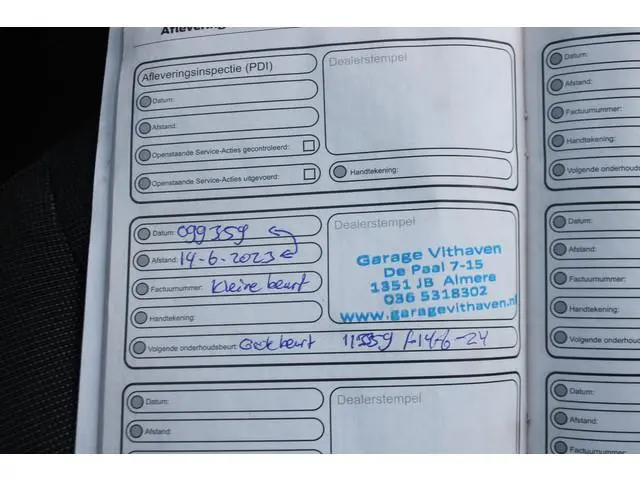 Aflevering
Afleveringsinspectie (PDI)
Dealerstempel
Datum:
Afstand:
Openstaande Service-Acties gecontroleerd:
Openstaande Service-Acties uitgevoerd:
Handtekening:
Datum: 099359
Afstand: 14-6-2023
Factuurnummer: Kleine beurt
Handtekening:
Dealerstempel
Garage Vithaven
De Paal 7-15
1351 JB Almere
036 5318302
www.garagevithaven.nl
Volgende onderhoudsbeurt: Grote beurt 14-6-24
Datum:
Afstand:
Dealerstempel
Datum:
Afstand:
Factuurnummer:
Handtekening:
Volgende onderhoudsb
Datum:
Afstand:
Factuurnummer:
Handtekening:
Volgende onderhouds
Datum:
Afstand:
Factuurnummer: